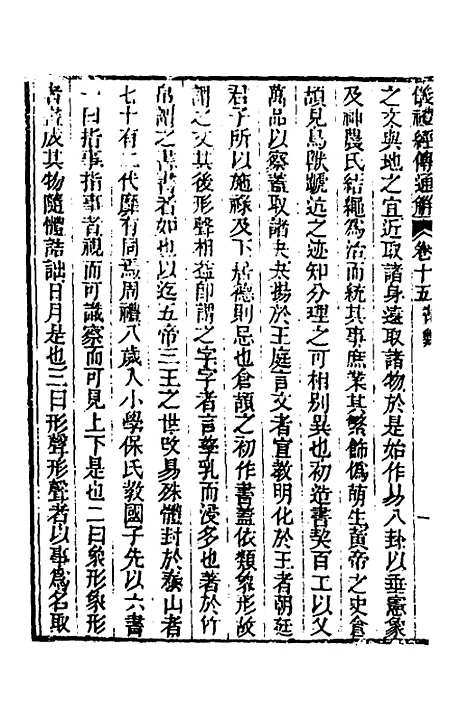 儀禮經傳通解 卷十五 書數 一
之文與地之宜近取諸身遠取諸物於是始作易八卦以垂憲象
及神農氏結繩爲治而統其事庶業其繁飾僞萌生黃帝之史倉
頡見鳥獸蹏迒之迹知分理之可相別異也初造書契百工以乂
萬品以察蓋取諸夬夬揚於王庭言文者宣教明化於王者朝廷
君子所以施祿及下居德則忌也倉頡之初作書蓋依類象形故
謂之文其後形聲相益即謂之字字者言孳乳而浸多也著於竹
帛謂之書書者如也以迄五帝三王之世改易殊體封於泰山者
七十有二代靡有同焉周禮八歲入小學保氏教國子先以六書
一曰指事指事者視而可識察而可見上下是也二曰象形象形
者畫成其物隨體詰詘日月是也三曰形聲形聲者以事爲名取